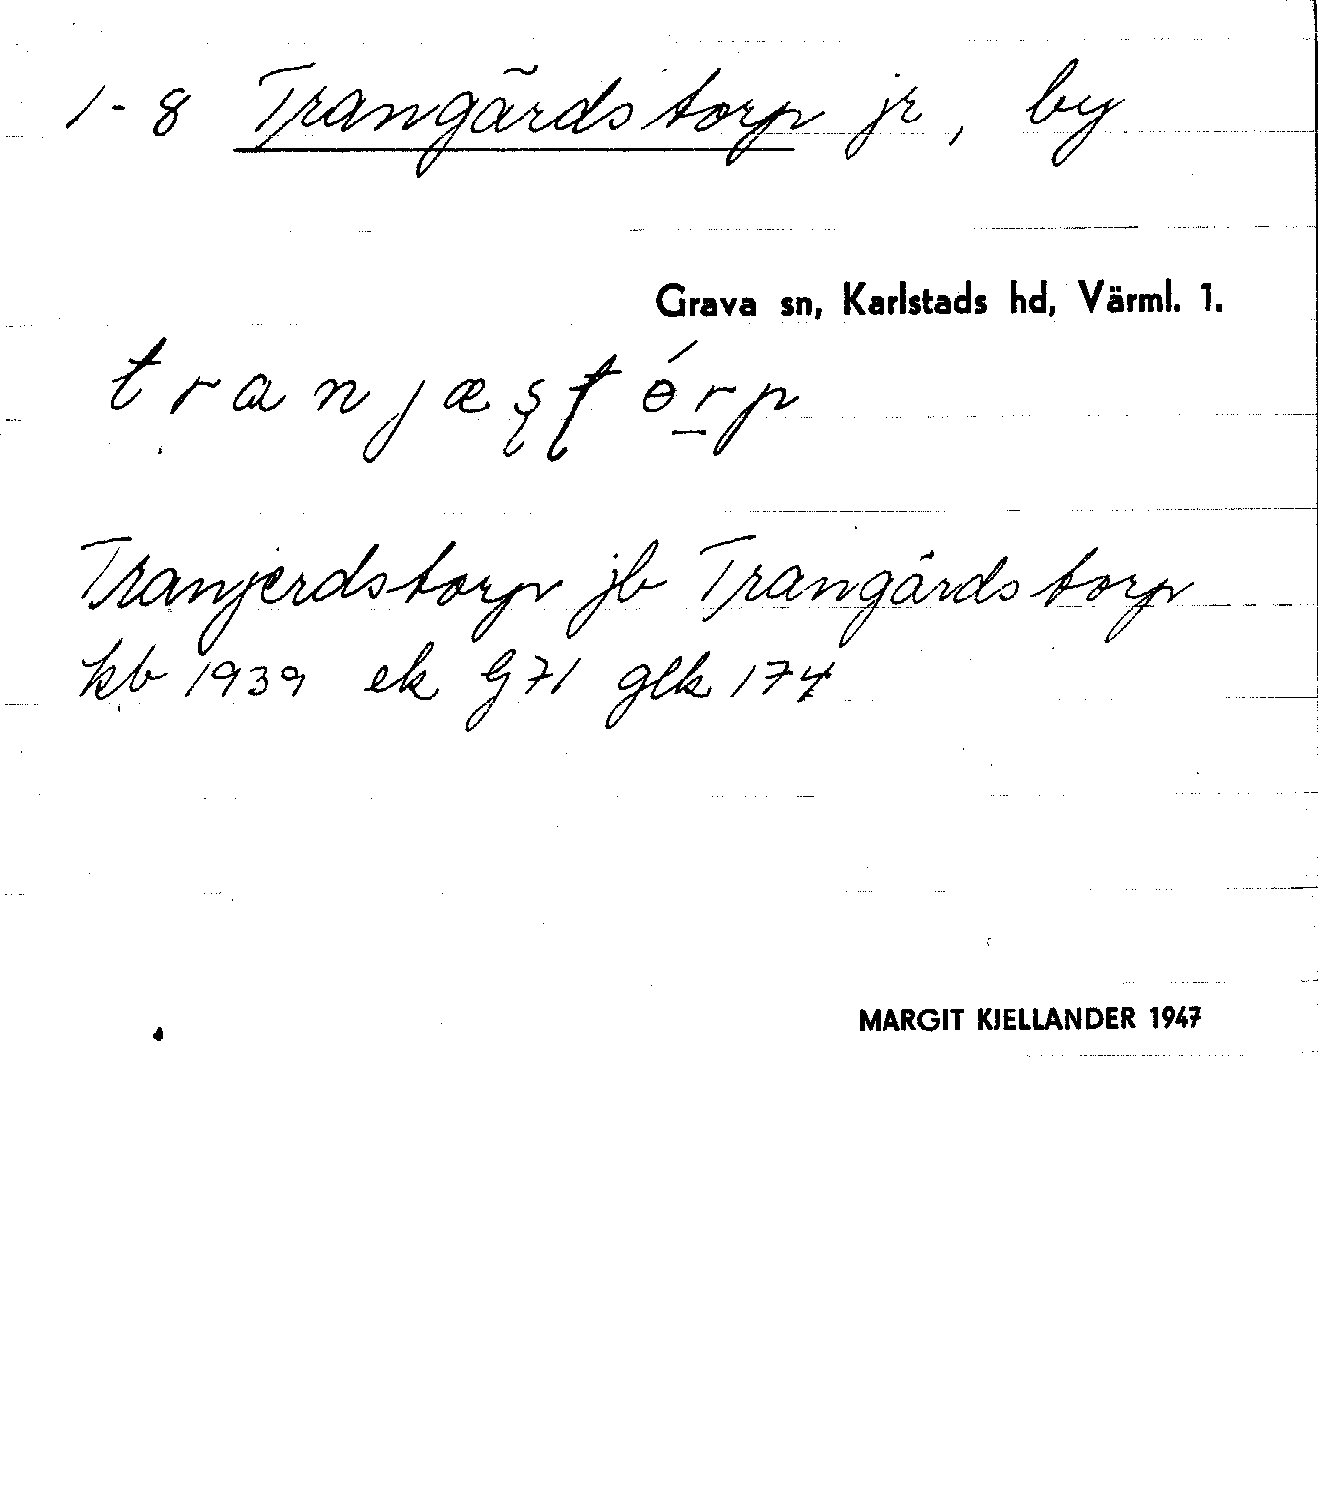 1-8 Trangärdstorp jr, by
Grava sn, Karlstads hd, Värml. 1.
tranjæʂʈɵ́r̲p
Tranjerdstorp jb Trangärdstorp
kb 1939 ek G71 glk 174
MARGIT KJELLANDER 1947